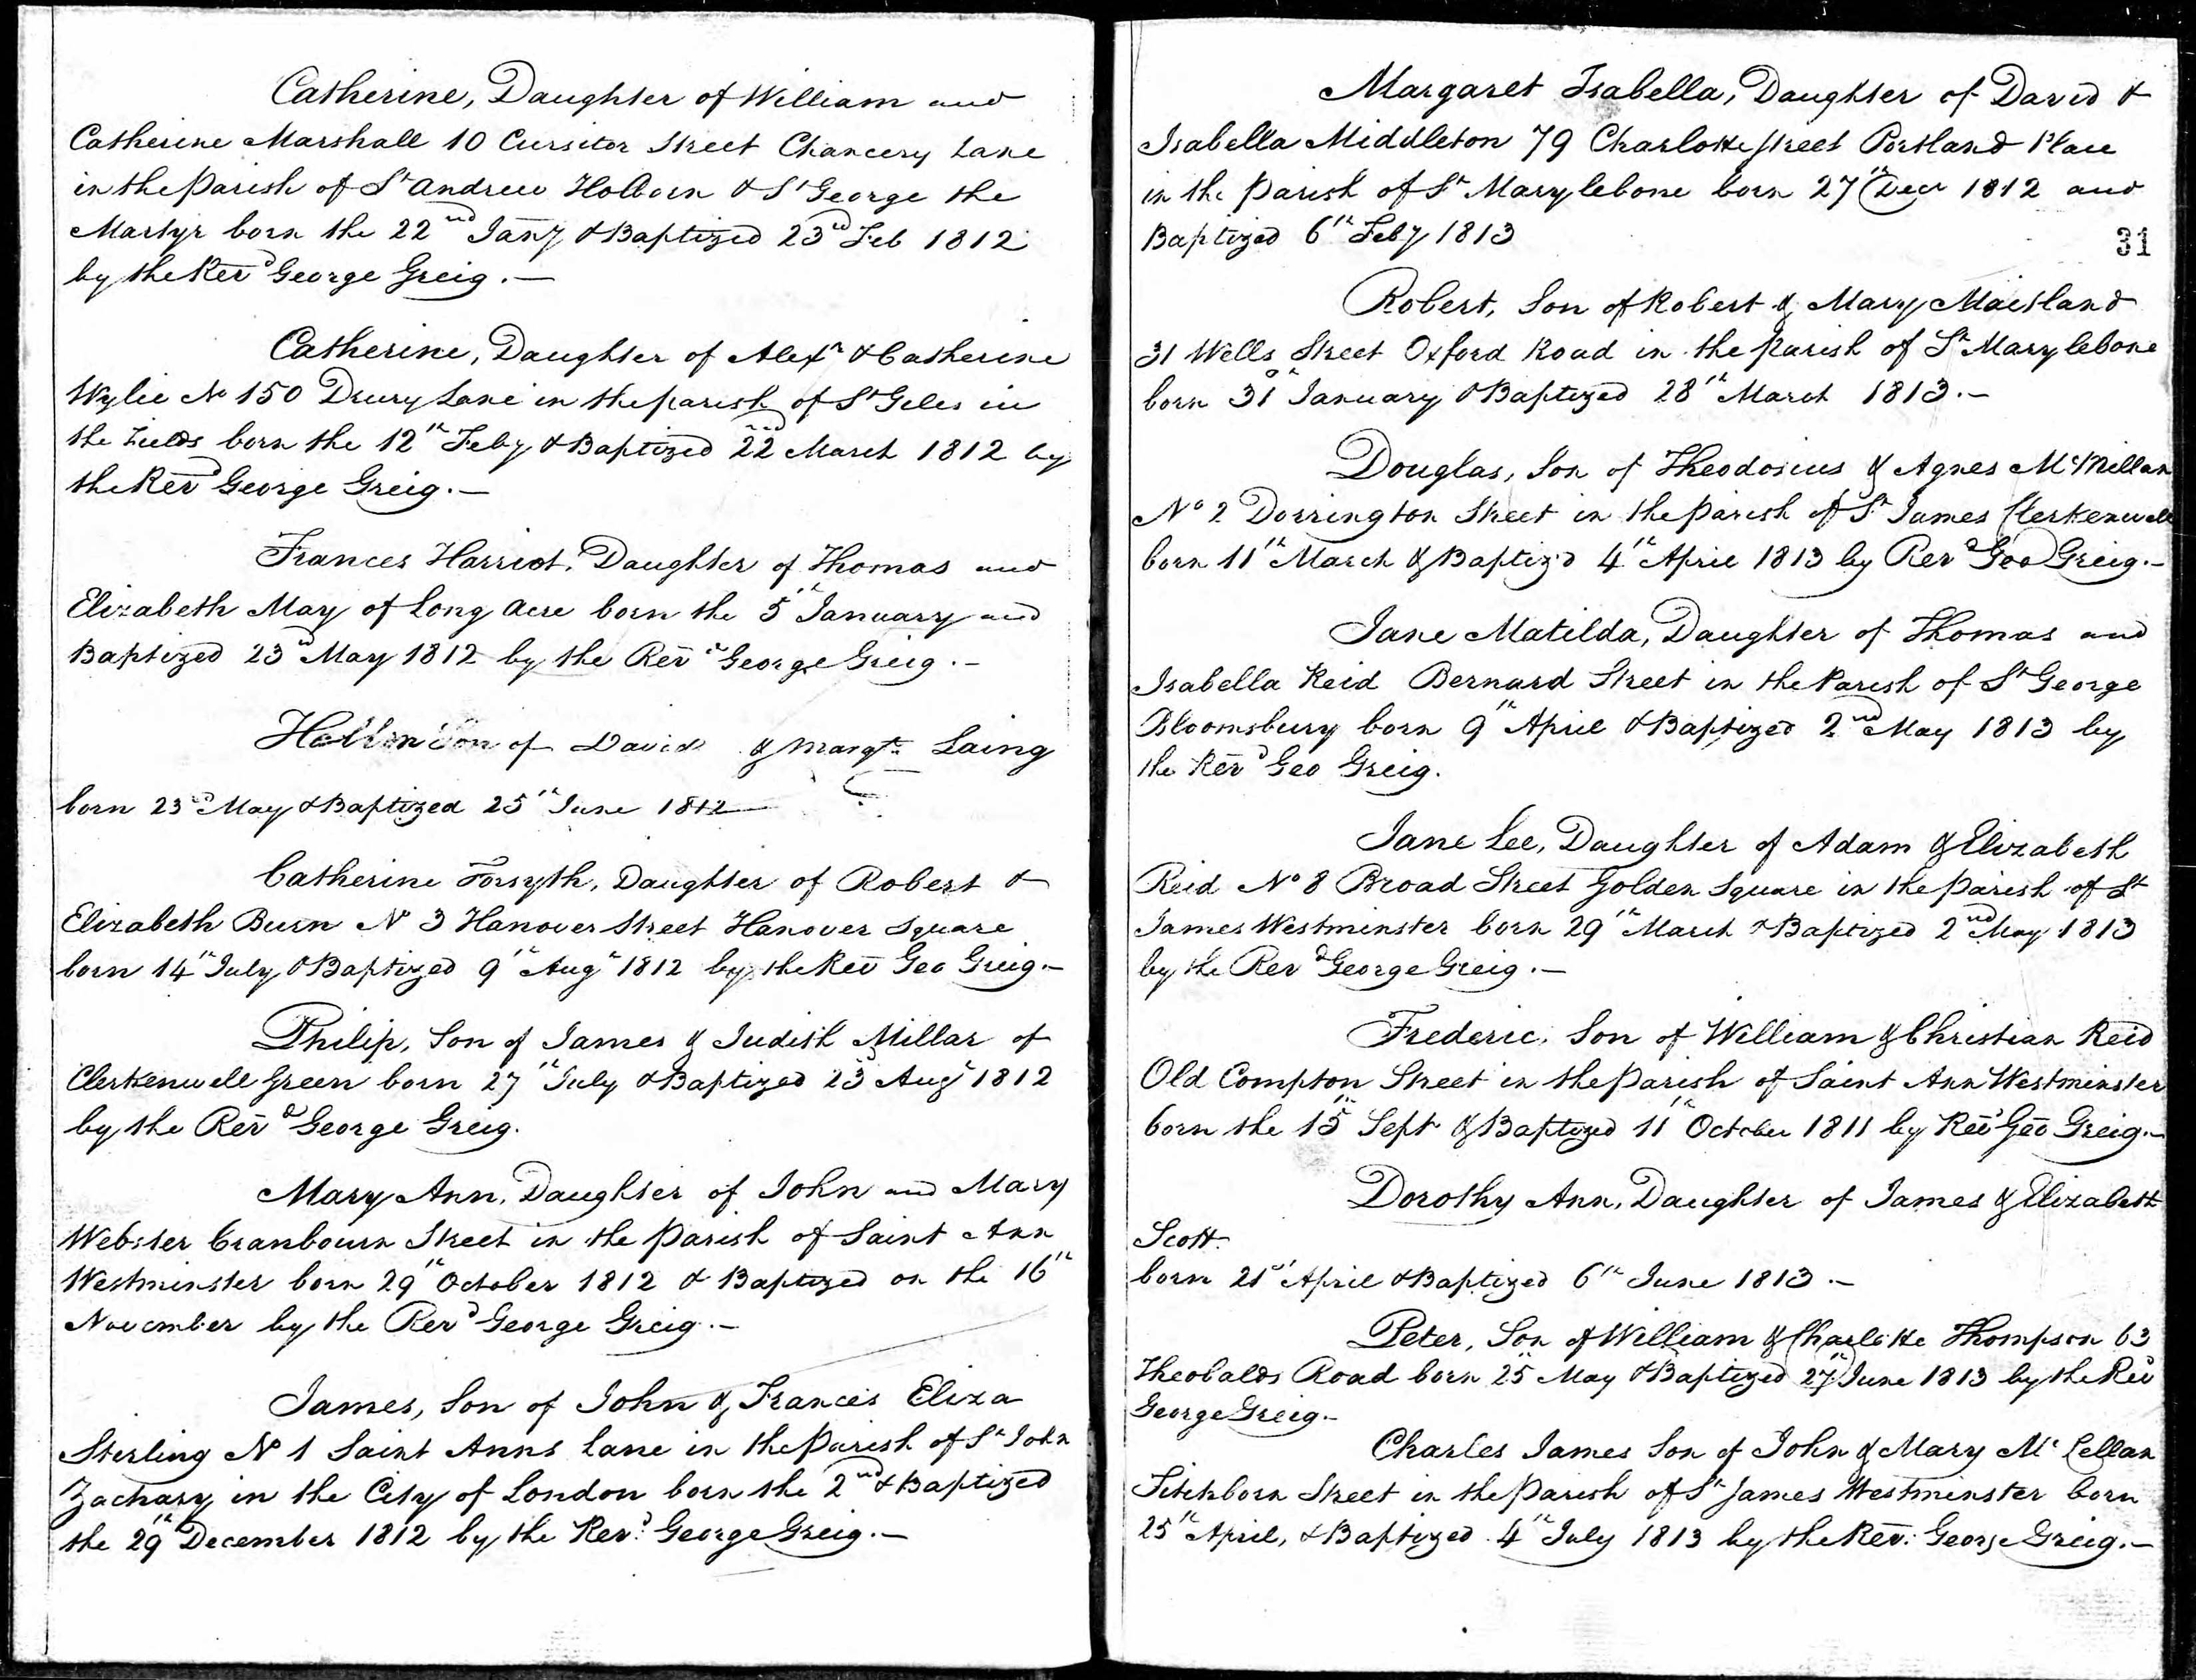 Catherine, Daughter of William and
Catherine Marshall 10 Cursitor Street Chancery Lane
in the Parish of St Andrew Holborn & St George the
Martyr born the 22nd Jany & Baptized 23d Feb 1812
by the Revd George Greig.—
Catherine, Daughter of Alexr & Catherine
Wylie No 150 Drury Lane in the parish of St Giles in
the Fields born the 12th Feby & Baptized 22nd March 1812 by
the Revd George Greig.—
Frances Harriot, Daughter of Thomas and
Elizabeth May of Long Acre born the 5th January and
Baptized 23rd May 1812 by the Revd George Greig.—
Son of David & Margt Laing
born 23rd May & Baptized 25th June 1812—
Catherine Forsyth, Daughter of Robert &
Elizabeth Burn No 3 Hanover Street Hanover Square
born 14th July & Baptized 9th Augt 1812 by the Rev Geo Greig.—
Philip, Son of James & Judith Millar of
Clerkenwell Green born 27th July & Baptized 23 Augt 1812
by the Revd George Greig.
Mary Ann, Daughter of John and Mary
Webster Cranbourn Street in the Parish of Saint Ann
Westminster born 29th October 1812 & Baptized on the 16th
November by the Revd George Greig.—
James, Son of John & Frances Eliza
Sterling No 1 Saint Anns Lane in the Parish of St John
Zachary in the City of London born the 2nd & Baptized
the 29th December 1812 by the Revd George Greig.—
Margaret Isabella, Daughter of David &
Isabella Middleton 79 Charlotte Street Portland Place
in the Parish of St Marylebone born 27th Decr 1812 and
Baptized 6th Feby 1813
31
Robert, Son of Robert & Mary Maitland
31 Wells Street Oxford Road in the parish of St Marylebone
born 31st January & Baptized 28th March 1813.—
Douglas, Son of Theodosius & Agnes McMillan
No 2 Dorrington Street in the Parish of St James Clerkenwell
born 11th March & Baptiz'd 4th April 1813 by Revd Geo Greig.—
Jane Matilda, Daughter of Thomas and
Isabella Reid Bernard Street in the Parish of St George
Bloomsbury born 9th April & Baptized 2nd May 1813 by
the Revd Geo Greig.
Jane Lee, Daughter of Adam & Elizabeth
Reid No 8 Broad Street Golden Square in the Parish of St
James Westminster born 29th March & Baptized 2nd May 1813
by the Revd George Greig.—
Frederic, Son of William & Christian Reid
Old Compton Street in the Parish of Saint Ann Westminster
born the 15th Sept & Baptized 11th October 1811 by Revd Geo Greig.—
Dorothy Ann, Daughter of James & Elizabeth
Scott
born 21st April & Baptized 6th June 1813.—
Peter, Son of William & Charlotte Thompson 63
Theobalds Road born 25th May & Baptized 27th June 1813 by the Revd
George Greig.—
Charles James Son of John & Mary Mc Lellan
Titchborn Street in the Parish of St James Westminster born
25th April, & Baptized 4th July 1813 by the Rev: George Greig.—